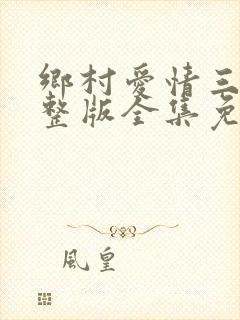 鄉村愛情三
整版全集免
風皇